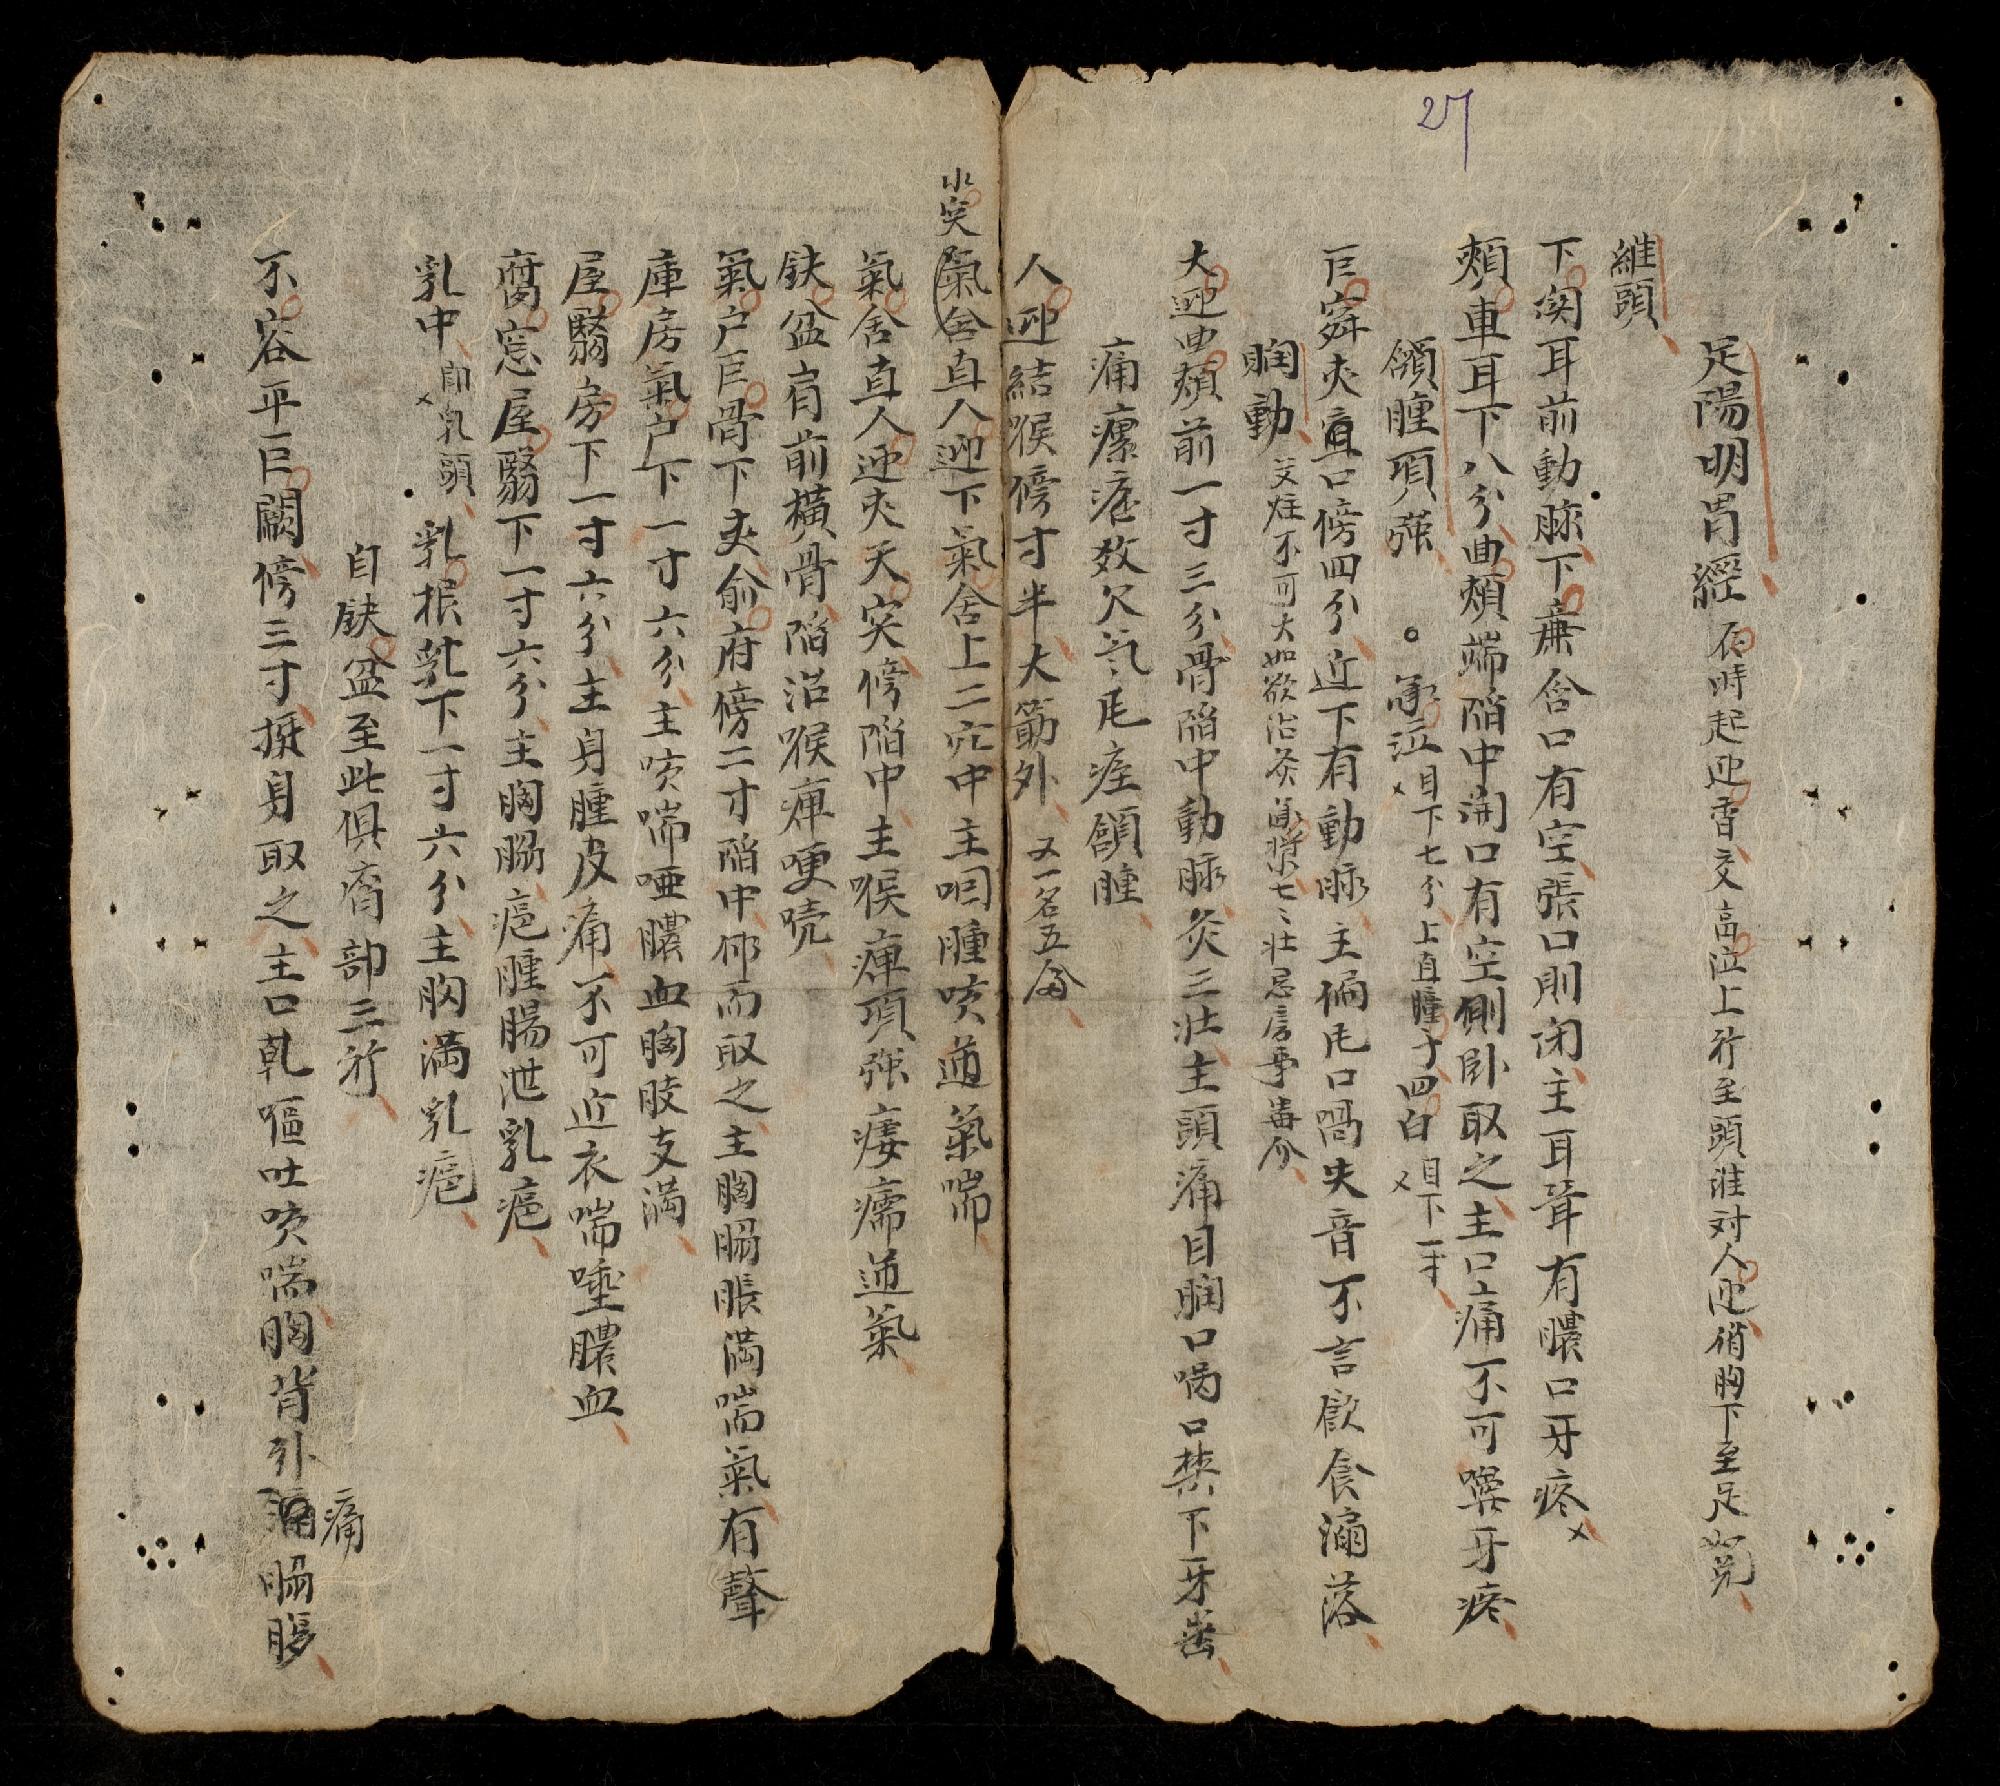 27
足陽明胃經 辰時起迎香交高泣上行至頭維対人迎循胸下至足𠒇兑
維頭
下関耳前動脉下廉合口有空張口則闭主耳聋有膿口牙疼
頬車耳下八分曲頬端陥中開口有空側卧取之主口痛不可嚼牙疼
頷腫項强 承泣目下七分上直瞳子四白目下一寸
巨窌夾直口傍四分近下有動脉主偏风口喎失音不言飲食漏落
瞤動 艾炷不可大如欲治灸
大迎曲頬前一寸三分骨陥中動脉灸三壮主頭痛目瞤口喎口禁下牙齒
痛瘰瘧数欠氣风痓頷腫
人迎結喉傍寸半大筋外 又一名五
水突氣舍直人迎下氣舍上二穴中主咽腫咳逆氣喘
氣舍直人迎夾天突傍陥中主喉痺項强瘘癗逆氣
缺盆肩前横骨陥治喉痺哽
氣户巨骨下夾俞府傍二寸陥中仰而取之主胸脇脹満喘氣有聲
庫房氣户下一寸六分主咳喘唾膿血胸肢支満
屋翳房下一寸六分主身腫皮痛不可近衣喘唾膿血
膺窓屋翳下一寸六分主胸脇癰腫腸泄乳癰
乳中即乳頭 乳根乳下一寸六分主胸満乳癰
自缺盆至此俱膺部三行
不容平巨闕傍三寸挺身取之主口乾嘔吐咳喘胸背引痛脇
痛